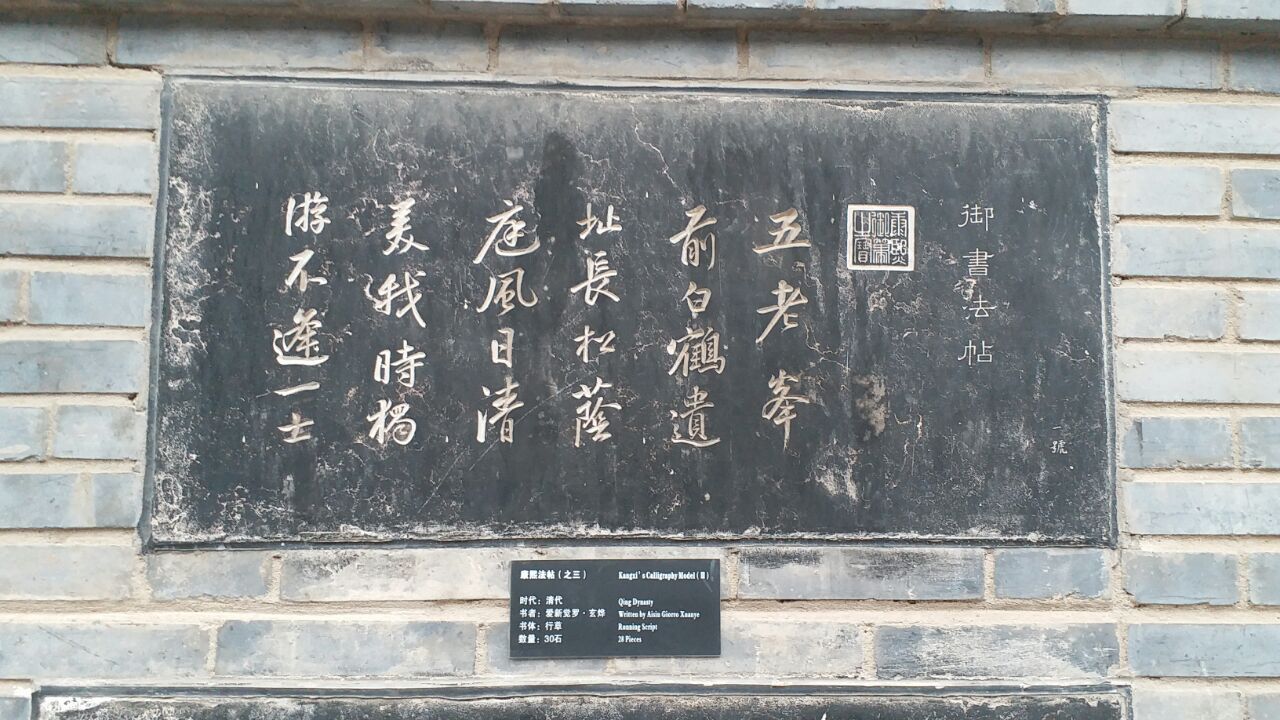 御書法帖
一號
康熙御筆之寶
五老峯
前白鶴遺
址長松蔭
庭風日清
美我時獨
游不逢一士
康熙法帖（之三） Kangxi's Calligraphy Model（Ⅲ）
时代：清代 Qing Dynasty
书者：爱新觉罗·玄烨 Written by Aisin Giorro Xuanye
书体：行草 Running Script
数量：30石 28 Pieces